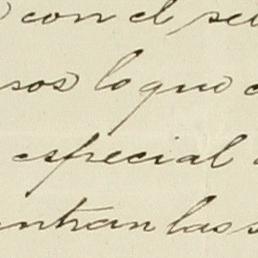 con el se
sos lo que
especial
ntran las s